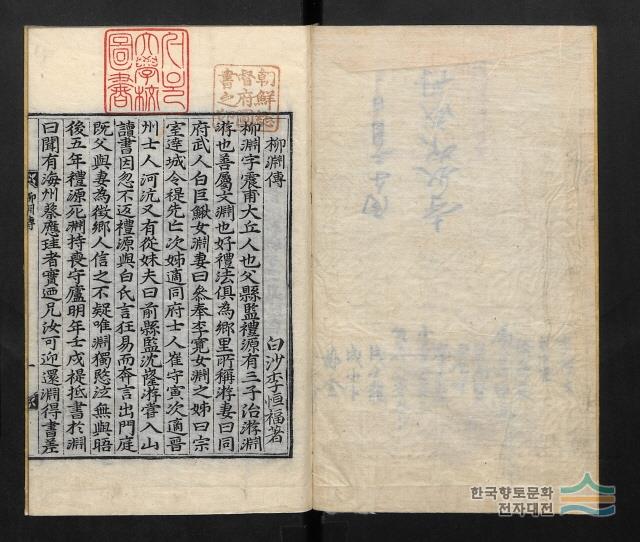 柳淵傳
白沙李恒福著
柳淵字震甫大丘人也父縣監禮源有三子治游淵
游也善屬文淵也好禮法俱為鄉里所稱游妻曰同
府武人白巨鰍女淵妻曰參奉李寬女淵之姊曰宗
室達城令禔先亡次姊適同府士人崔守寅次適晋
州士人河沆又有從妹夫曰前縣監沈㠎游嘗入山
讀書因忽不返禮源與白氏言狂易而奔言出門庭
既父與妻為徵鄉人信之不疑唯淵獨愍泣無與晤
後五年禮源死淵持喪守廬明年壬戌禔抵書於淵
曰聞有海州蔡應珪者實迺兄汝可迎還淵得書差
柳淵傳
一
圖書
大學校
朝鮮總
督府圖
書之
한국향토문화
전자대전